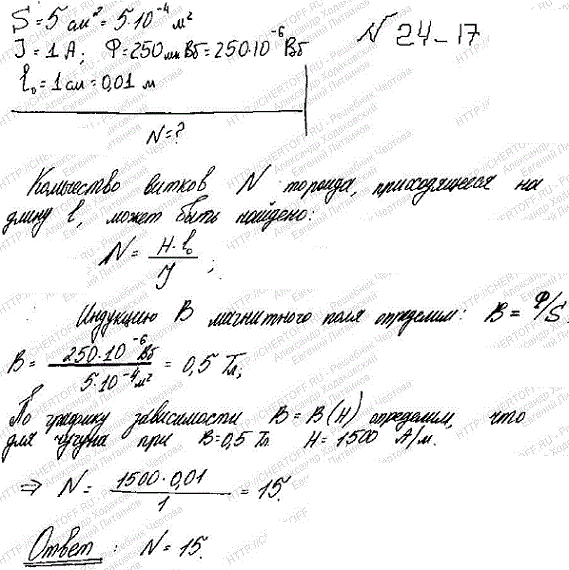 S = 5 см² = 5·10⁻⁴ м²
J = 1 А; Ф = 250 мк Вб = 250·10⁻⁶ Вб
l₀ = 1 см = 0,01 м
N = ?
N 24-17
Количество витков N тороида, приходящееся на
длину l, может быть найдено:
N = H·l₀ / J ;
Индукцию B магнитного поля определим: B = Ф/S.
B = 250·10⁻⁶ Вб / 5·10⁻⁴ м² = 0,5 Тл;
По графику зависимости B = B(H) определим, что
для чугуна при B = 0,5 Тл H = 1500 А/м.
⇒ N = 1500·0,01 / 1 = 15.
Ответ: N = 15.
HTTP://CHERTOFF.RU - Решебник Чертова
Александр Ходаковский
Евгений Литвинов